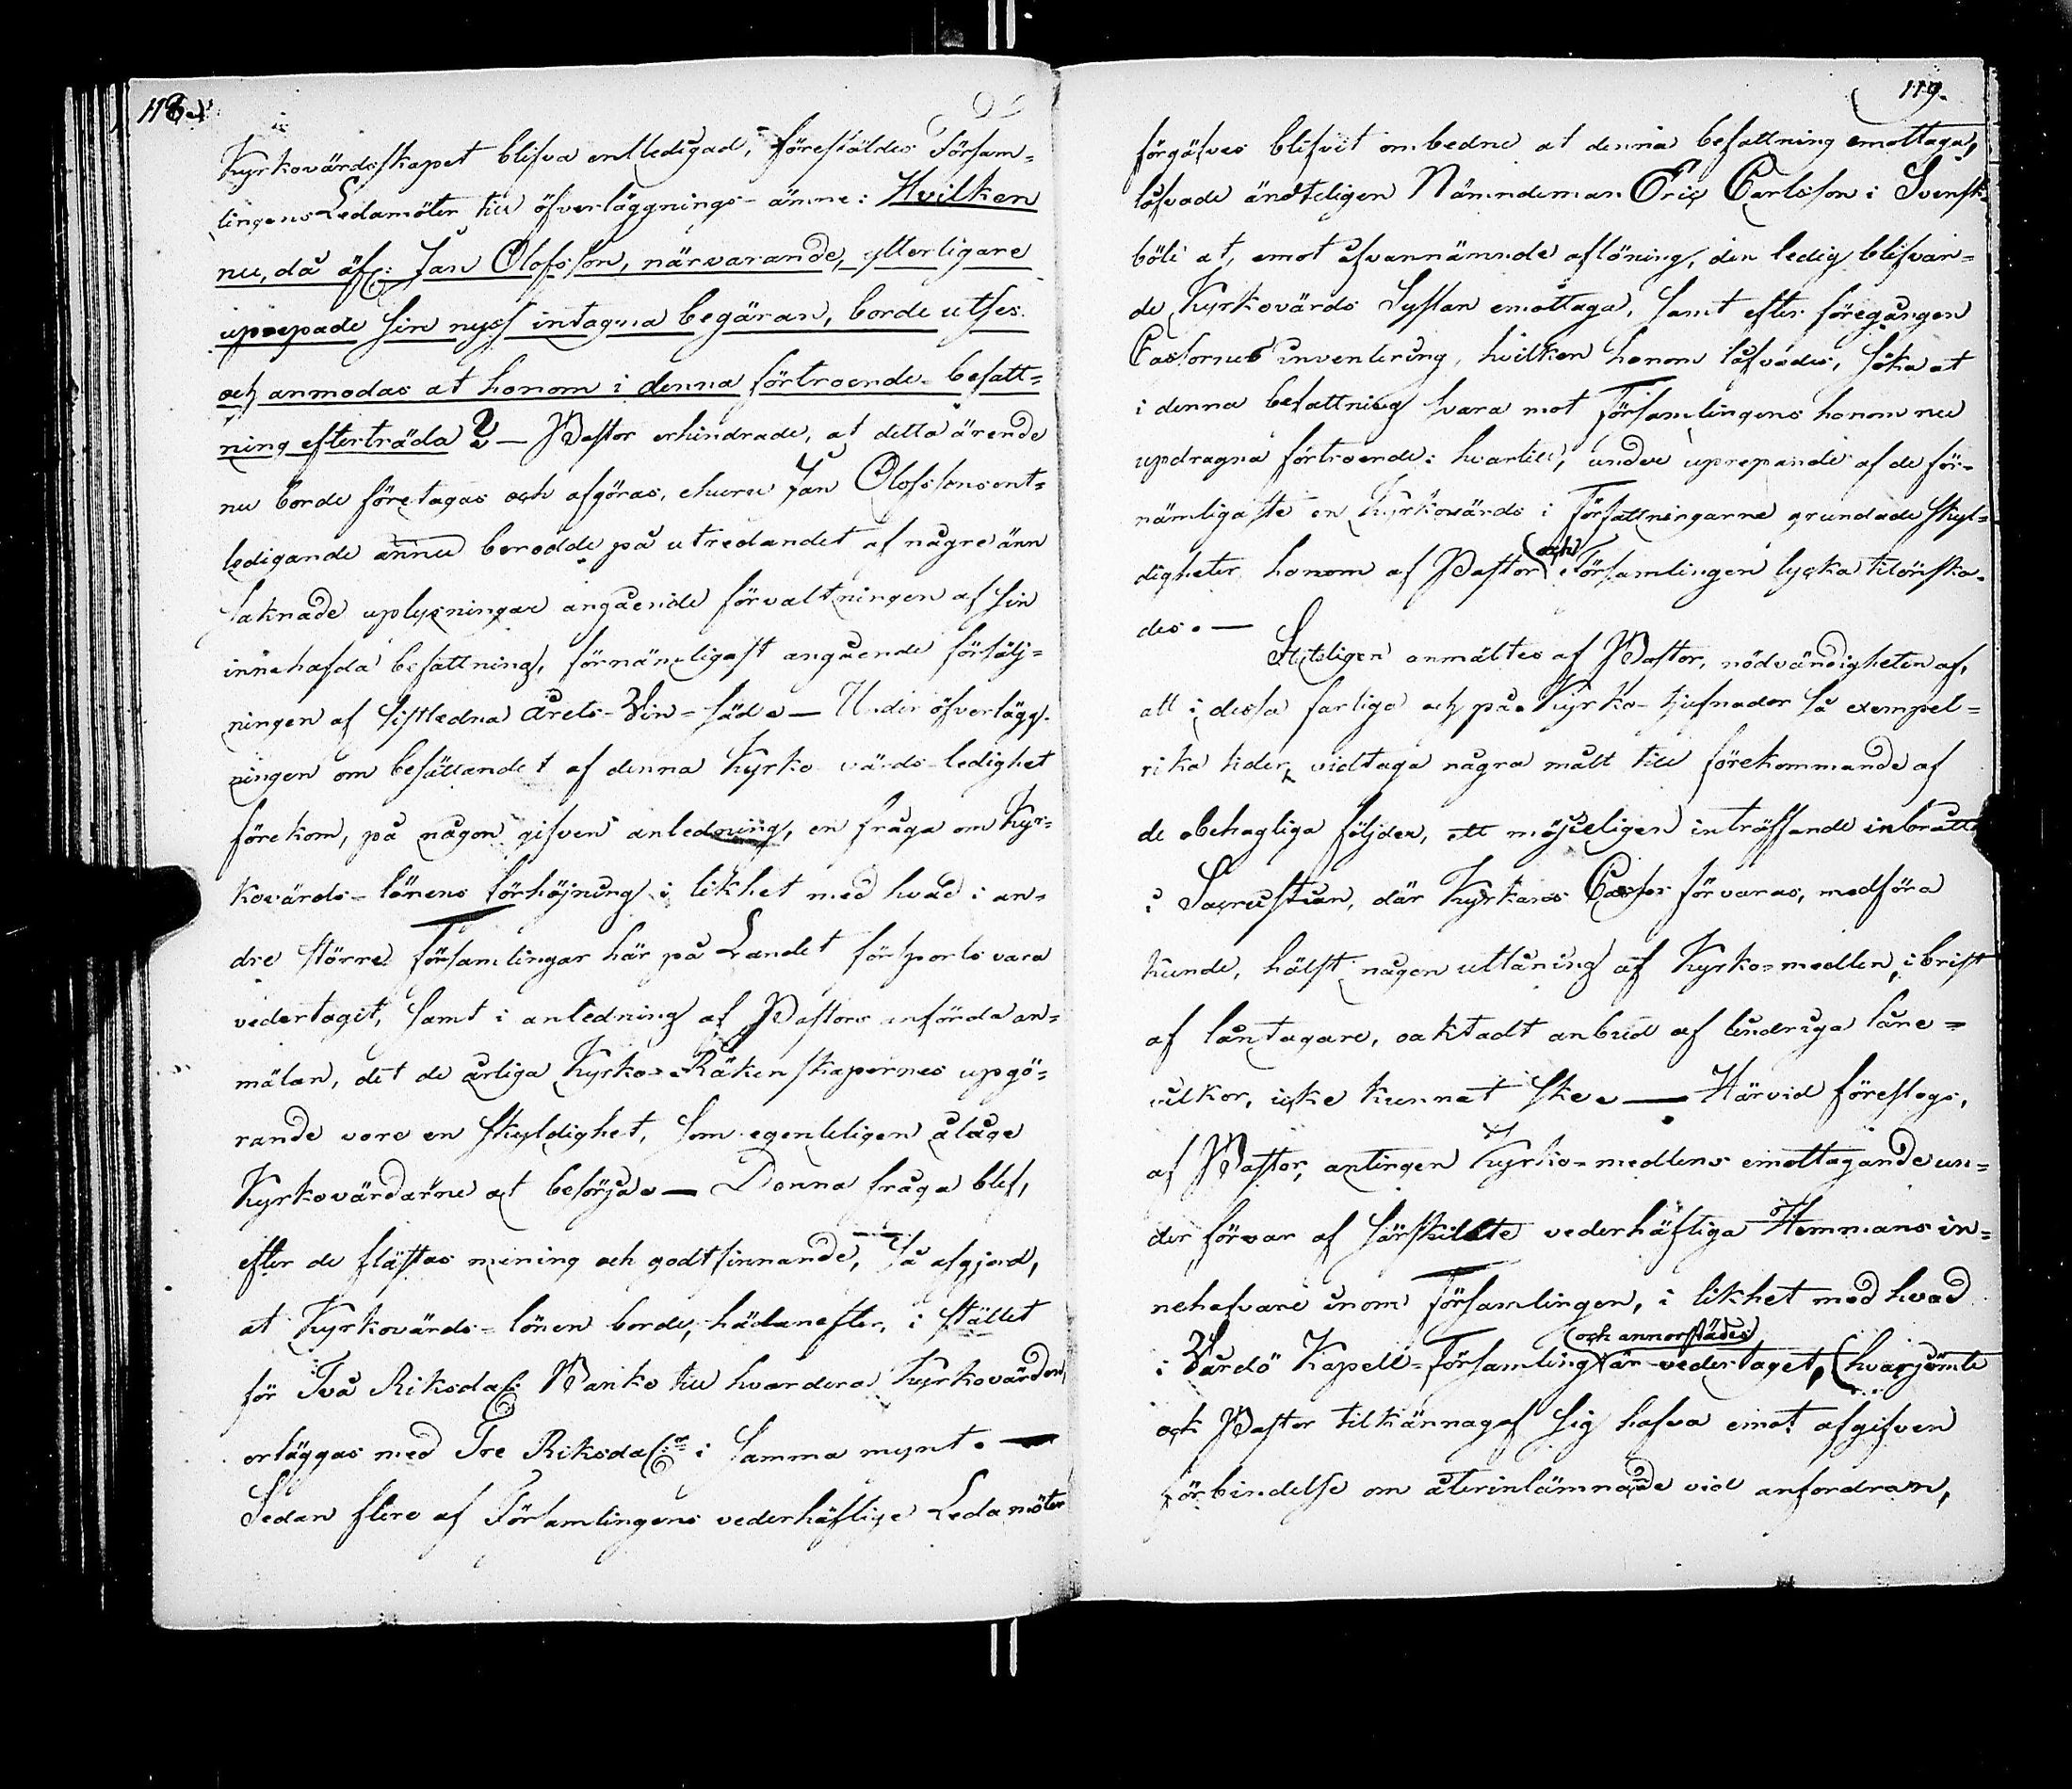 118.
Kyrkovärdsskapet blifva entledigad, föreställdes Försam=
lingens Ledamöter till öfverläggnings-ämne: Hvilken
nu, då äfv: Jan Olofsson, närvarande, ytterligare
uprepade sin nyss intagna begäran, borde utses
och anmodas at honom i denna förtroende-befatt=
ning efterträda? — Pastor erhindrade, at detta ärende
nu borde företagas och afgöras, ehuru Jan Olofssons ent=
ledigande ännu berodde på utredandet af någre änn
saknade uplysningar angående förvaltningen af sin
innehafda befattning, förnämligast angående försälj=
ningen af sistledna årets-Vin-säd. — Under öfverlägg-
ningen om besättandet af denna Kyrko värds-ledighet
förekom, på någon gifven anledning, en fråga om Kyr=
kovärds-lönens förhöjning i likhet med hvad i an=
dre större Församlingar här på Landet försports vara
vedertagit, samt i anledning af Pastors anförda an=
mälan, det de årliga Kyrko-Räkenskapernes upgö=
rande vore en skyldighet, som egenteligen ålåge
Kyrkovärdarne at besörja. — Denna fråga blef,
efter de flästas mening och godtfinnande, så afgjord,
at Kyrkovärds-lönen borde, hädanefter, i stället
för Två Riksdal: Banko till hvardera Kyrkovärden,
erläggas med Tre Riksdal:r i samma mynt. —
Sedan flere af Församlingens vederhäftige Ledamöter
119.
förgäfves blifvit ombedne at denna befattning emottaga,
låfvade ändteligen Nämndeman Eric Carlsson i Svensk=
böle at, emot ofvannämnde aflöning, den ledig blifvan=
de Kyrkovärds Sysslan emottaga, samt efter föregången
Cassornes inventering, hvilken honom låfvades, söka at
i denna befattning svara mot Församlingens honom nu
updragna förtroende: hvartill, under uprepande af de för=
nämligaste en Kyrkovärds i Författningarne grundade skyl=
digheter honom af Pastor och Församlingen lycka tilönska=
des. —
Slutligen anmältes af Pastor, nödvändigheten af,
att i dessa farliga och på Kyrko-tjufnader så exempel=
rika tider, vidtaga några mått till förekommande af
de obehagliga följder, ett möjeligen inträffande inbrott
i Sacristian, där Kyrkans Cassor förvaras, medföra
kunde, hälst någon utlåning af Kyrko-medlen, i brist
af låntagare, oaktadt anbud af lindriga låne=
vilkor, icke kunnat ske. — Härvid föreslogs,
af Pastor, antingen Kyrko-medlens emottagande un=
der förvar af särskildte vederhäftiga Hemmans in=
nehafvare inom Församlingen, i likhet med hvad
i Vårdö Kapell-Församling och annorstädes är vedertaget, hvarjemte
ock Pastor tilkännagaf sig hafva emot afgifven
förbindelse om återinlämnande vid anfordran,